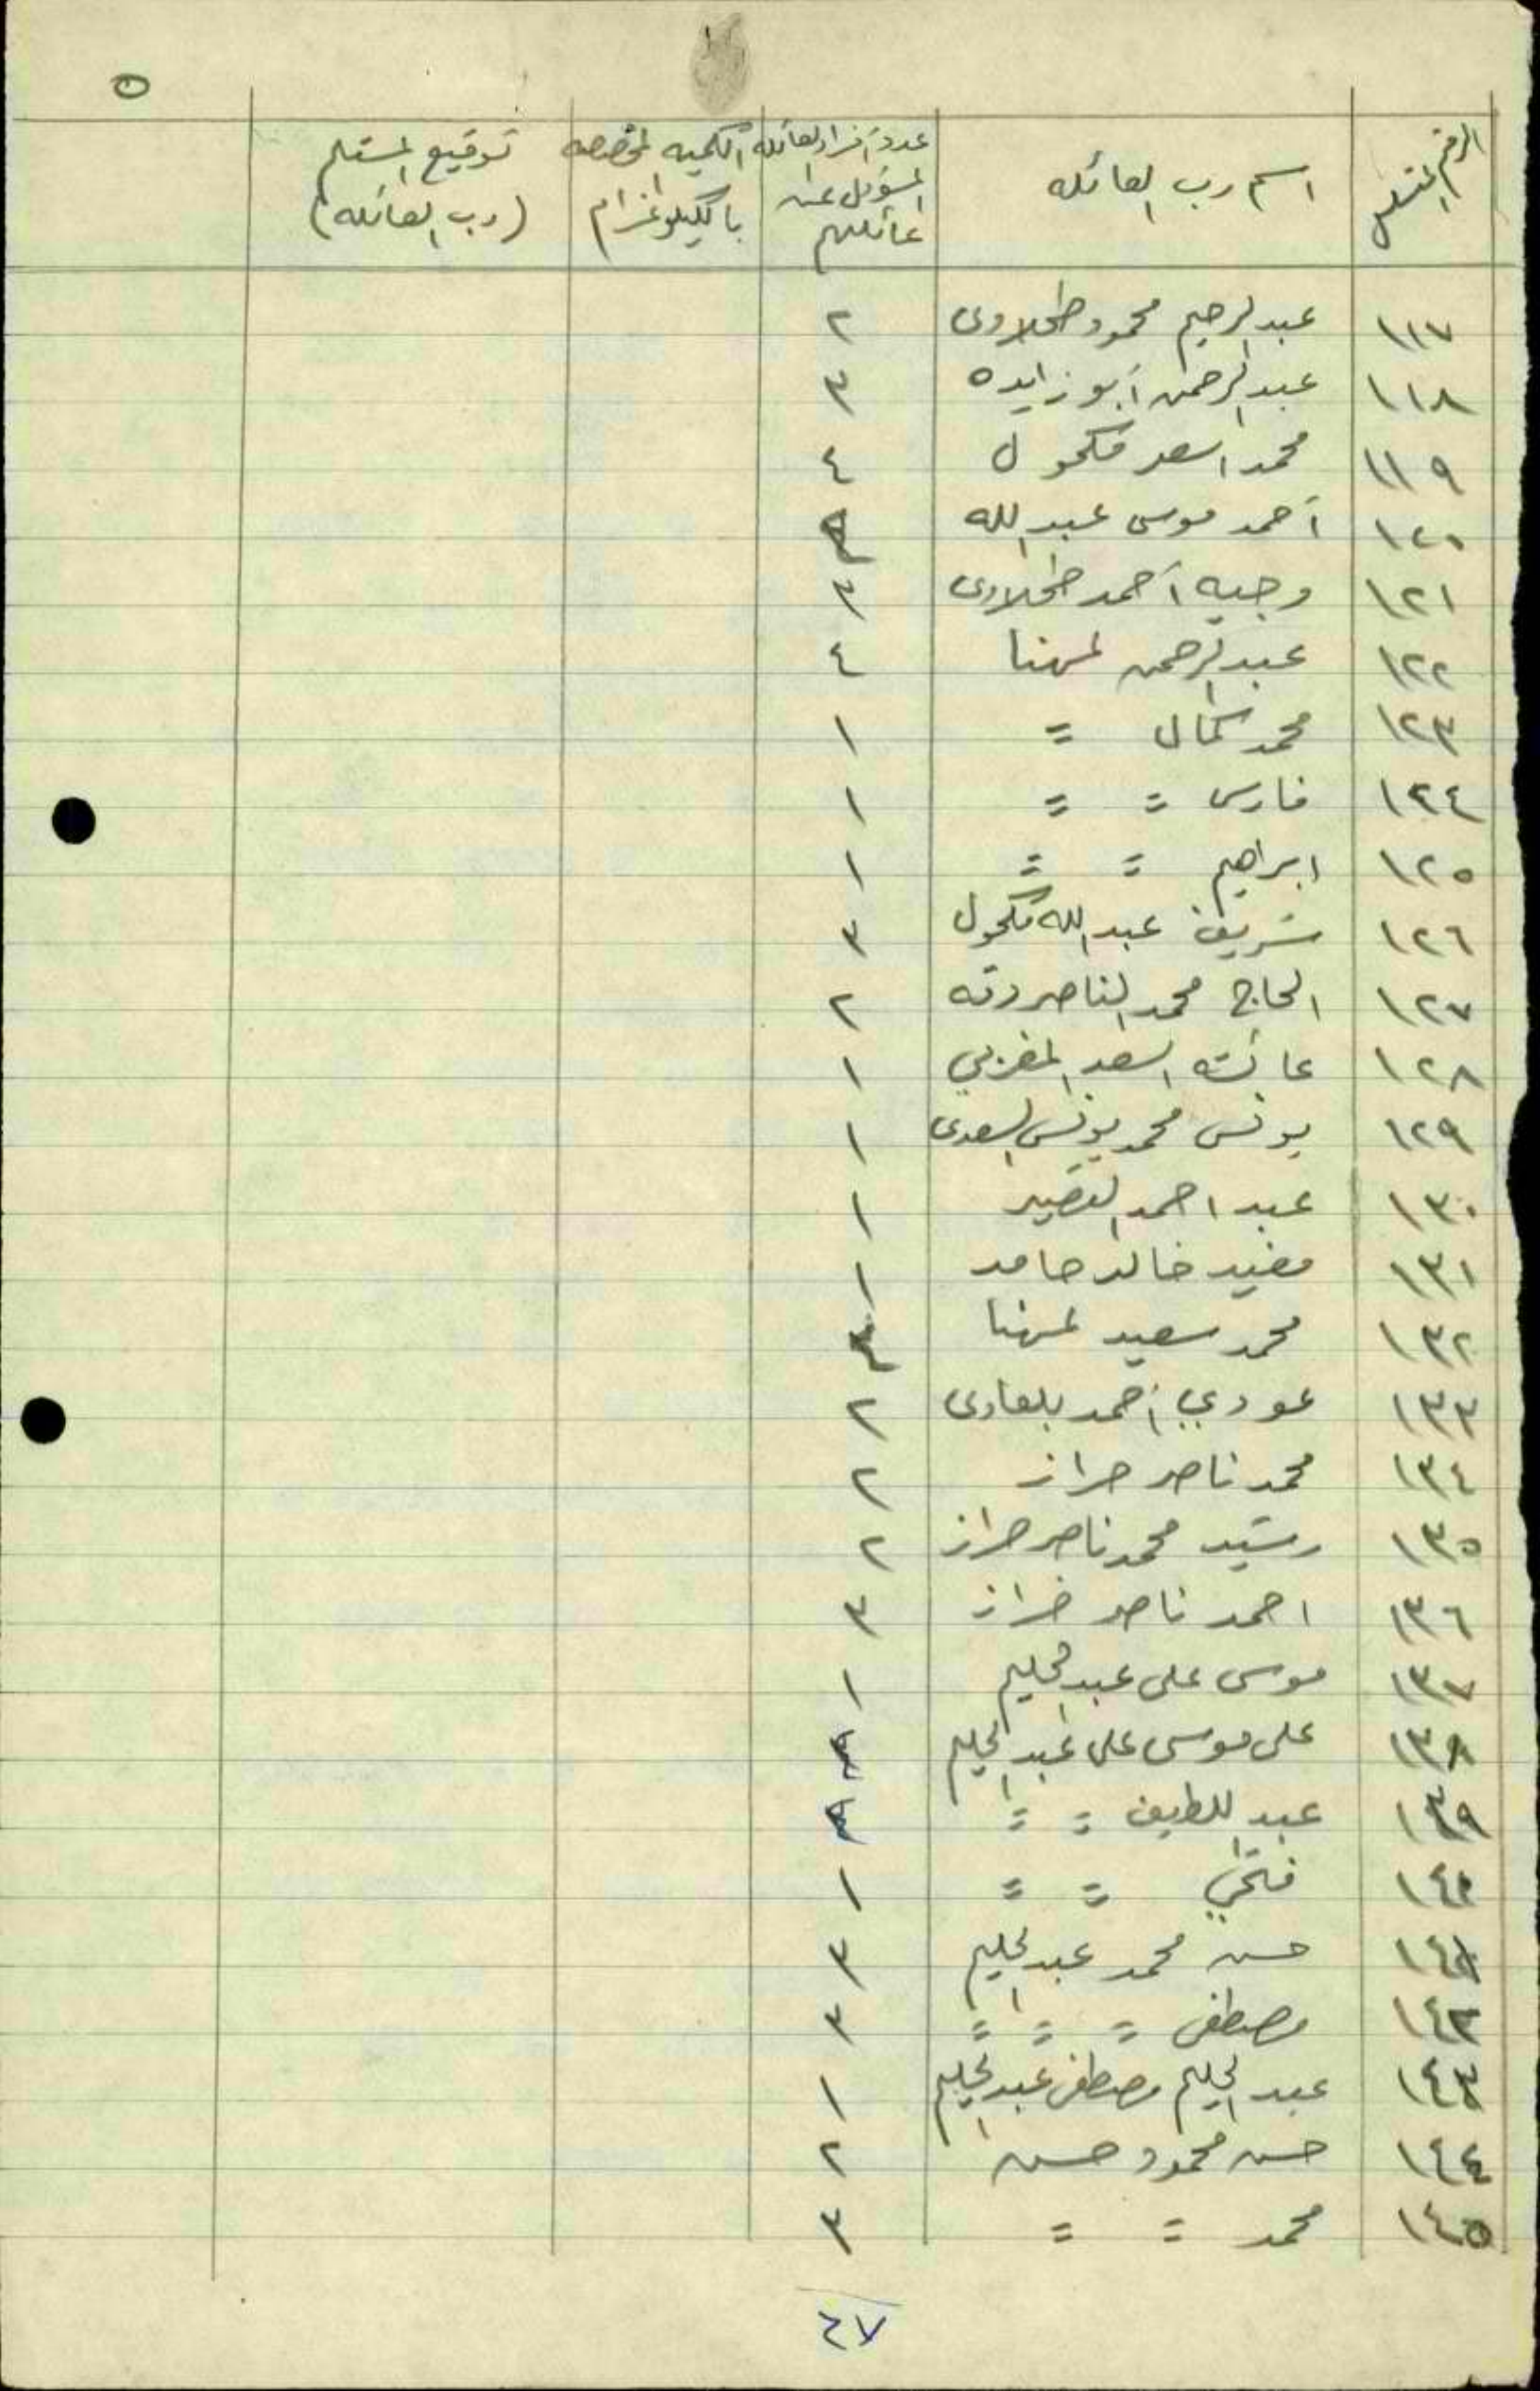 ٥
الرقم المتسلسل | اسم رب العائله | عدد أفراد العائله المسؤول عن عائلهم | الكميه المخصصه بالكيلوغرام | توقيع المستلم (رب العائله)
١١٧ عبد الرحيم محمود طحلاوى ٢
١١٨ عبد الرحمن أبو زايده ٣
١١٩ محمد اسعد مكحول ٤
١٢٠ أحمد موسى عبد الله
١٢١ وجيه أحمد طحلاوى ٣
١٢٢ عبد الرحمن المهنا ٤
١٢٣ محمد كمال = ١
١٢٤ فارس = = ١
١٢٥ ابراهيم = = ١
١٢٦ شريف عبد الله مكحول ٣
١٢٧ الحاج محمد الناصر دقه ٢
١٢٨ عائشه اسعد المغربي ١
١٢٩ يونس محمد يونس السعدى ١
١٣٠ عبد احمد القصير ١
١٣١ مفيد خالد حامد ١
١٣٢ محمد سعيد المهنا
١٣٣ عودي أحمد بلعاوى ٢
١٣٤ محمد ناصر حراز ٢
١٣٥ رشيد محمد ناصر حراز ٢
١٣٦ احمد ناصر خراز ٣
١٣٧ موسى على عبد الحليم ١
١٣٨ على موسى على عبد الحليم
١٣٩ عبد اللطيف = =
١٤٠ فتحي = = ١
١٤١ حسن محمد عبد الحليم ٣
١٤٢ مصطفى = = = ٣
١٤٣ عبد الحليم مصطفى عبد الحليم ١
١٤٤ حسن محمود حسن ٢
١٤٥ محمد = = ٣
٦٧